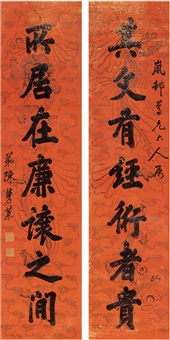 嵐邨尊兄大人屬
其文有經術者貴
所居在廉讓之間
弟陳